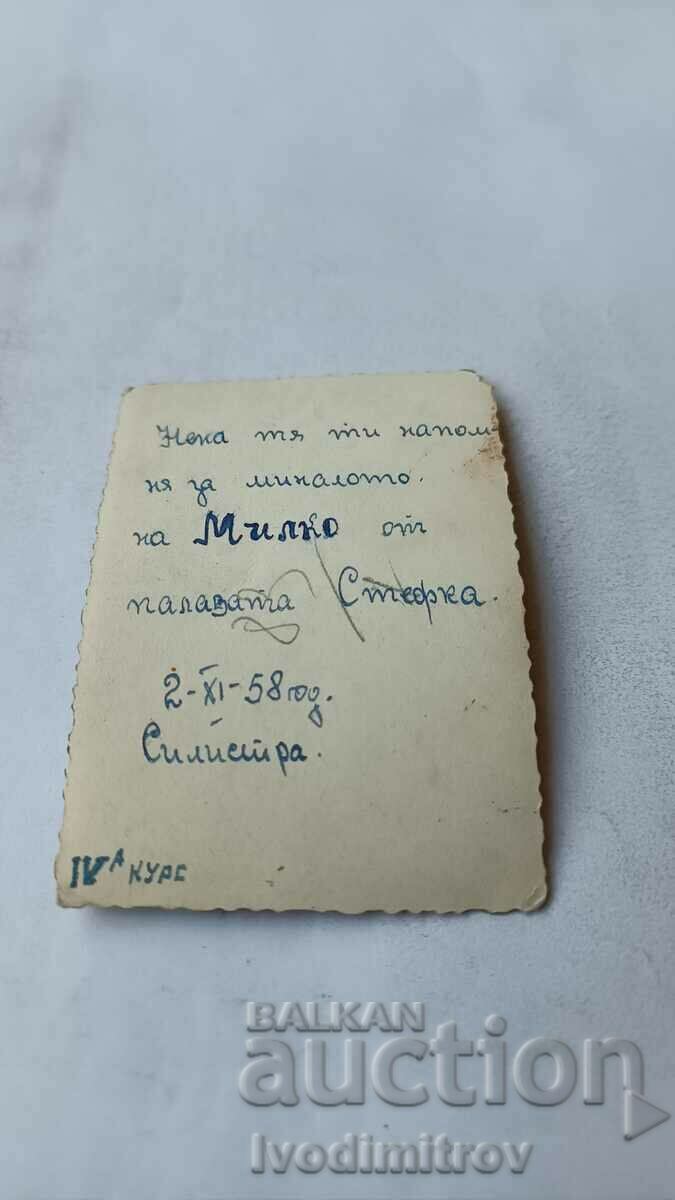 Нека тя ти напом-
ня за миналото.
на Милко от
палавата Стефка.
2-XI-58 год.
Силистра.
IV А КУРС
BALKAN
auction
Ivodimitrov